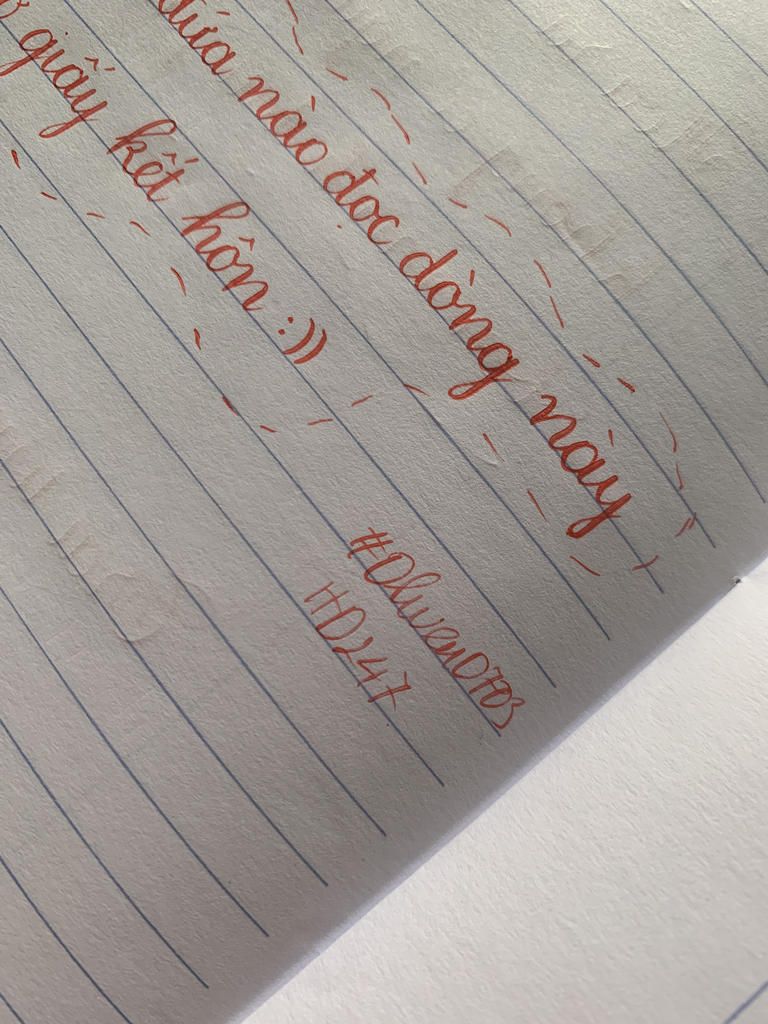 đứa nào đọc dòng này
giấy kết hôn :))
#Oliwen0703
HD247